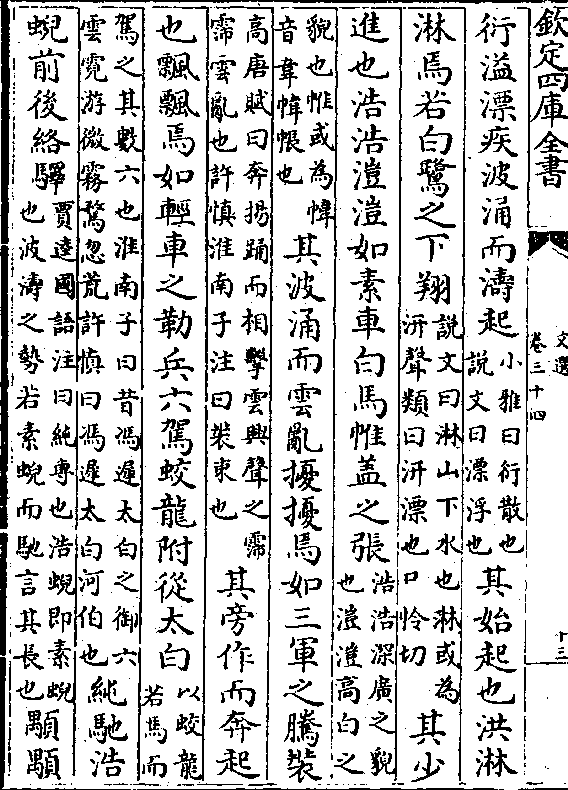 欽定四庫全書
文選
卷三十四
十三
衍溢漂疾波涌而濤起小雅曰衍散也說文曰漂浮也其始起也洪淋
淋焉若白鷺之下翔說文曰淋山下水也淋或為汧聲類曰汧漂也口怜切其少
進也浩浩溰溰如素車白馬帷盖之張浩浩深廣之貌也溰溰高白之
貌也帷或為幃音韋幃帳也其波涌而雲亂擾擾焉如三軍之騰裝
高唐賦曰奔揚踊而相擊雲興聲之霈霈雲亂也許慎淮南子注曰裝束也其旁作而奔起
也飄飄焉如輕車之勒兵六駕蛟龍附從太白以蛟龍若馬而
駕之其數六也淮南子曰昔馮遲太白之御六雲霓游微霧騖忽荒許慎曰馮遲太白河伯也純馳浩
蜺前後絡驛賈逵國語注曰純專也浩蜺即素蜺也波濤之勢若素蜺而馳言其長也顒顒